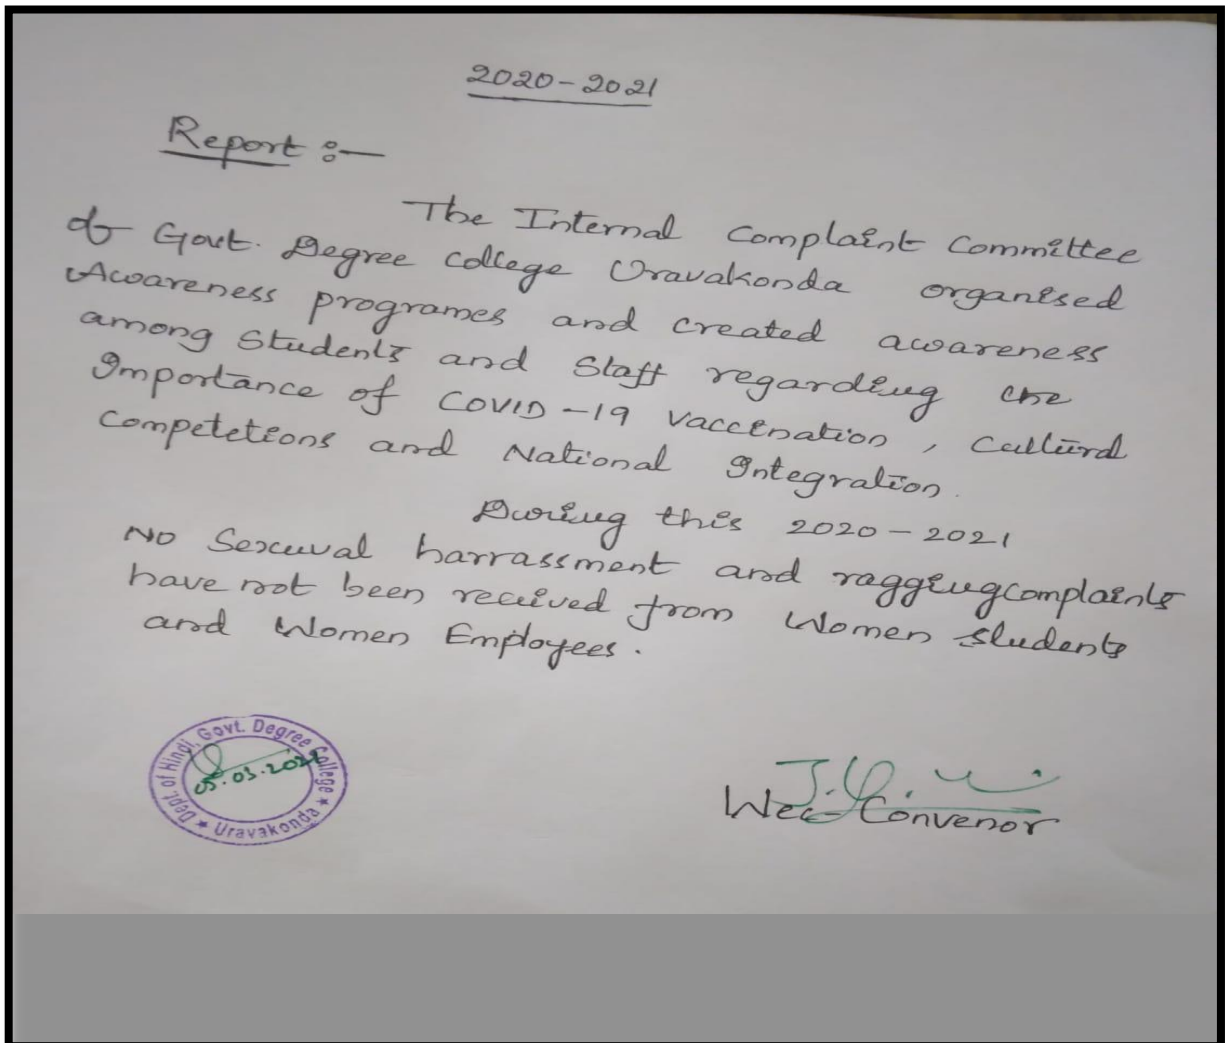 2020-2021
Report :-
The Internal Complaint Committee
of Govt. Degree College Uravakonda organised
Awareness programes and created awareness
among Students and Staff regarding the
Importance of COVID-19 vaccination, Cultural
Competetions and National Integration.
During this 2020-2021
No Sexuval harrassment and raggingcomplaints
have not been received from Women students
and Women Employees.
Dept. of Hindi, Govt. Degree College ★ Uravakonda ★
Wec-Convenor